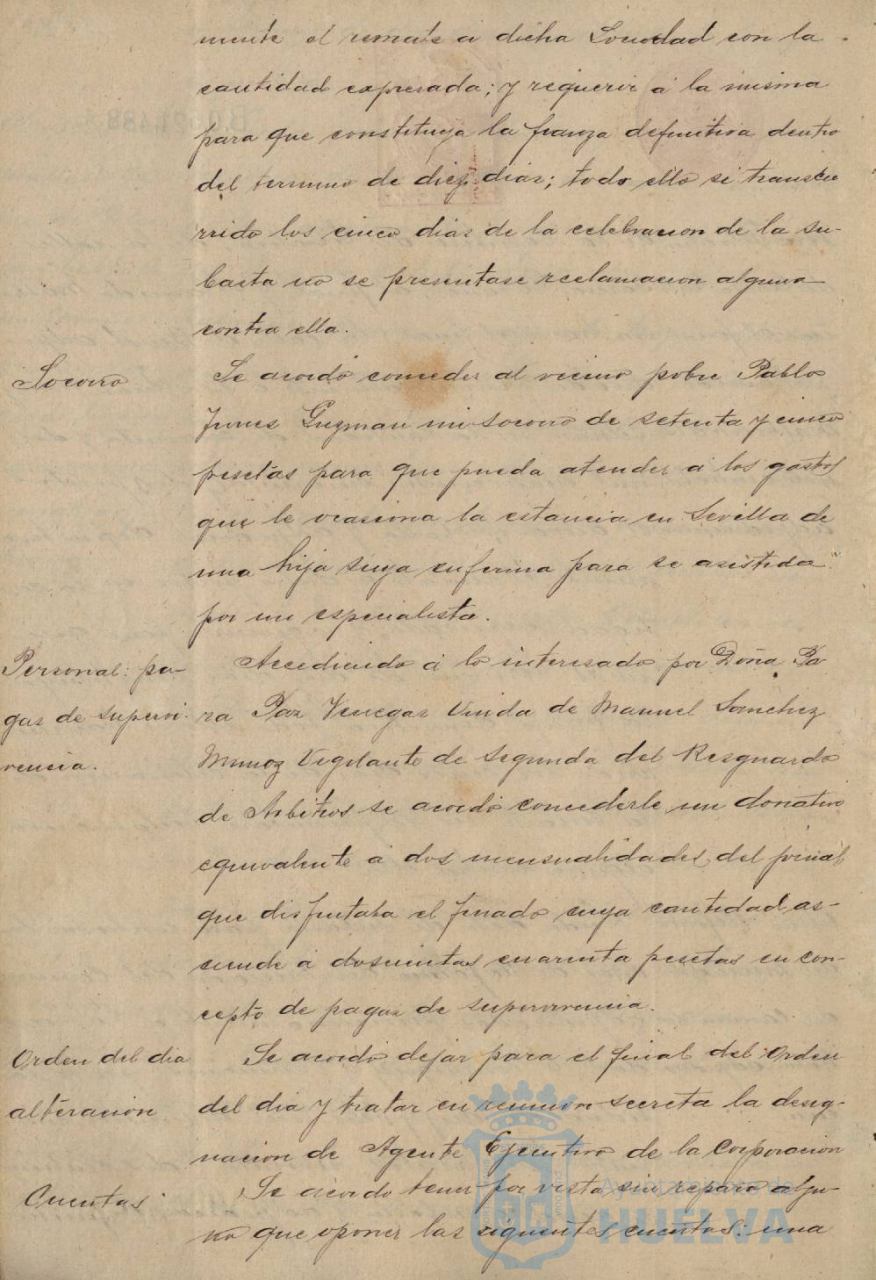 mente el remate a dicha Sociedad con la
cantidad expresada; y requerir á la misma
para que constituya la fianza definitiva dentro
del termino de diez dias; todo ello si transcu
rrido los cinco dias de la celebracion de la su-
basta no se presentase reclamacion alguna
contra ella.
Socorro
Se acordó conceder al vecino pobre Pablo
Guzman un socorro de setenta y cinco
pesetas para que pueda atender á los gastos
que le ocasiona la estancia en Sevilla de
una hija suya enferma para se asistida
por un especialista.
Personal: pa-
gas de supervi-
vencia.
Accediendo á lo interesado por Doña
Paz Venegas Viuda de Manuel Sanchez
Munoz Vigilante de Segunda del Resguardo
de Arbitros se acordó concederle un donativo
equivalente á dos mensualidades del jornal
que disfrutaba el finado cuya cantidad as-
ciende á doscientas cuarenta pesetas en con-
cepto de pagas de supervivencia.
Orden del dia
alteracion
Se acordó dejar para el final del orden
del dia y tratar en reunion secreta la desig-
nacion de Agente Ejecutivo de la Corporacion
Cuentas
Se acordo tener por vista sin reparo algu-
no que oponer las siguientes cuentas: una
Ayuntamiento de
HUELVA